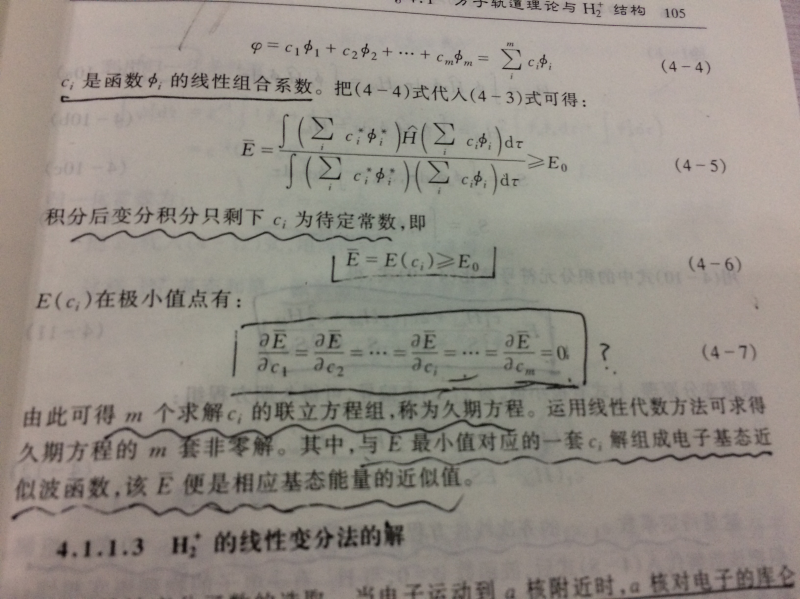 分子轨道理论与 H₂⁺ 结构 105
φ = c₁ϕ₁ + c₂ϕ₂ + ⋯ + cₘϕₘ = ∑ᵢᵐ cᵢϕᵢ (4-4)
cᵢ 是函数 ϕᵢ 的线性组合系数。把(4-4)式代入(4-3)式可得:
Ē = ∫(∑ᵢ cᵢ*ϕᵢ*)Ĥ(∑ᵢ cᵢϕᵢ)dτ / ∫(∑ᵢ cᵢ*ϕᵢ*)(∑ᵢ cᵢϕᵢ)dτ ⩾ E₀ (4-5)
积分后变分积分只剩下 cᵢ 为待定常数,即
Ē = E(cᵢ) ⩾ E₀ (4-6)
E(cᵢ)在极小值点有:
∂Ē/∂c₁ = ∂Ē/∂c₂ = ⋯ = ∂Ē/∂cᵢ = ⋯ = ∂Ē/∂cₘ = 0 ? (4-7)
由此可得 m 个求解 cᵢ 的联立方程组,称为久期方程。运用线性代数方法可求得
久期方程的 m 套非零解。其中,与 Ē 最小值对应的一套 cᵢ 解组成电子基态近
似波函数,该 Ē 便是相应基态能量的近似值。
4.1.1.3 H₂⁺ 的线性变分法的解
当电子运动到 a 核附近时,a 核对电子的库仑